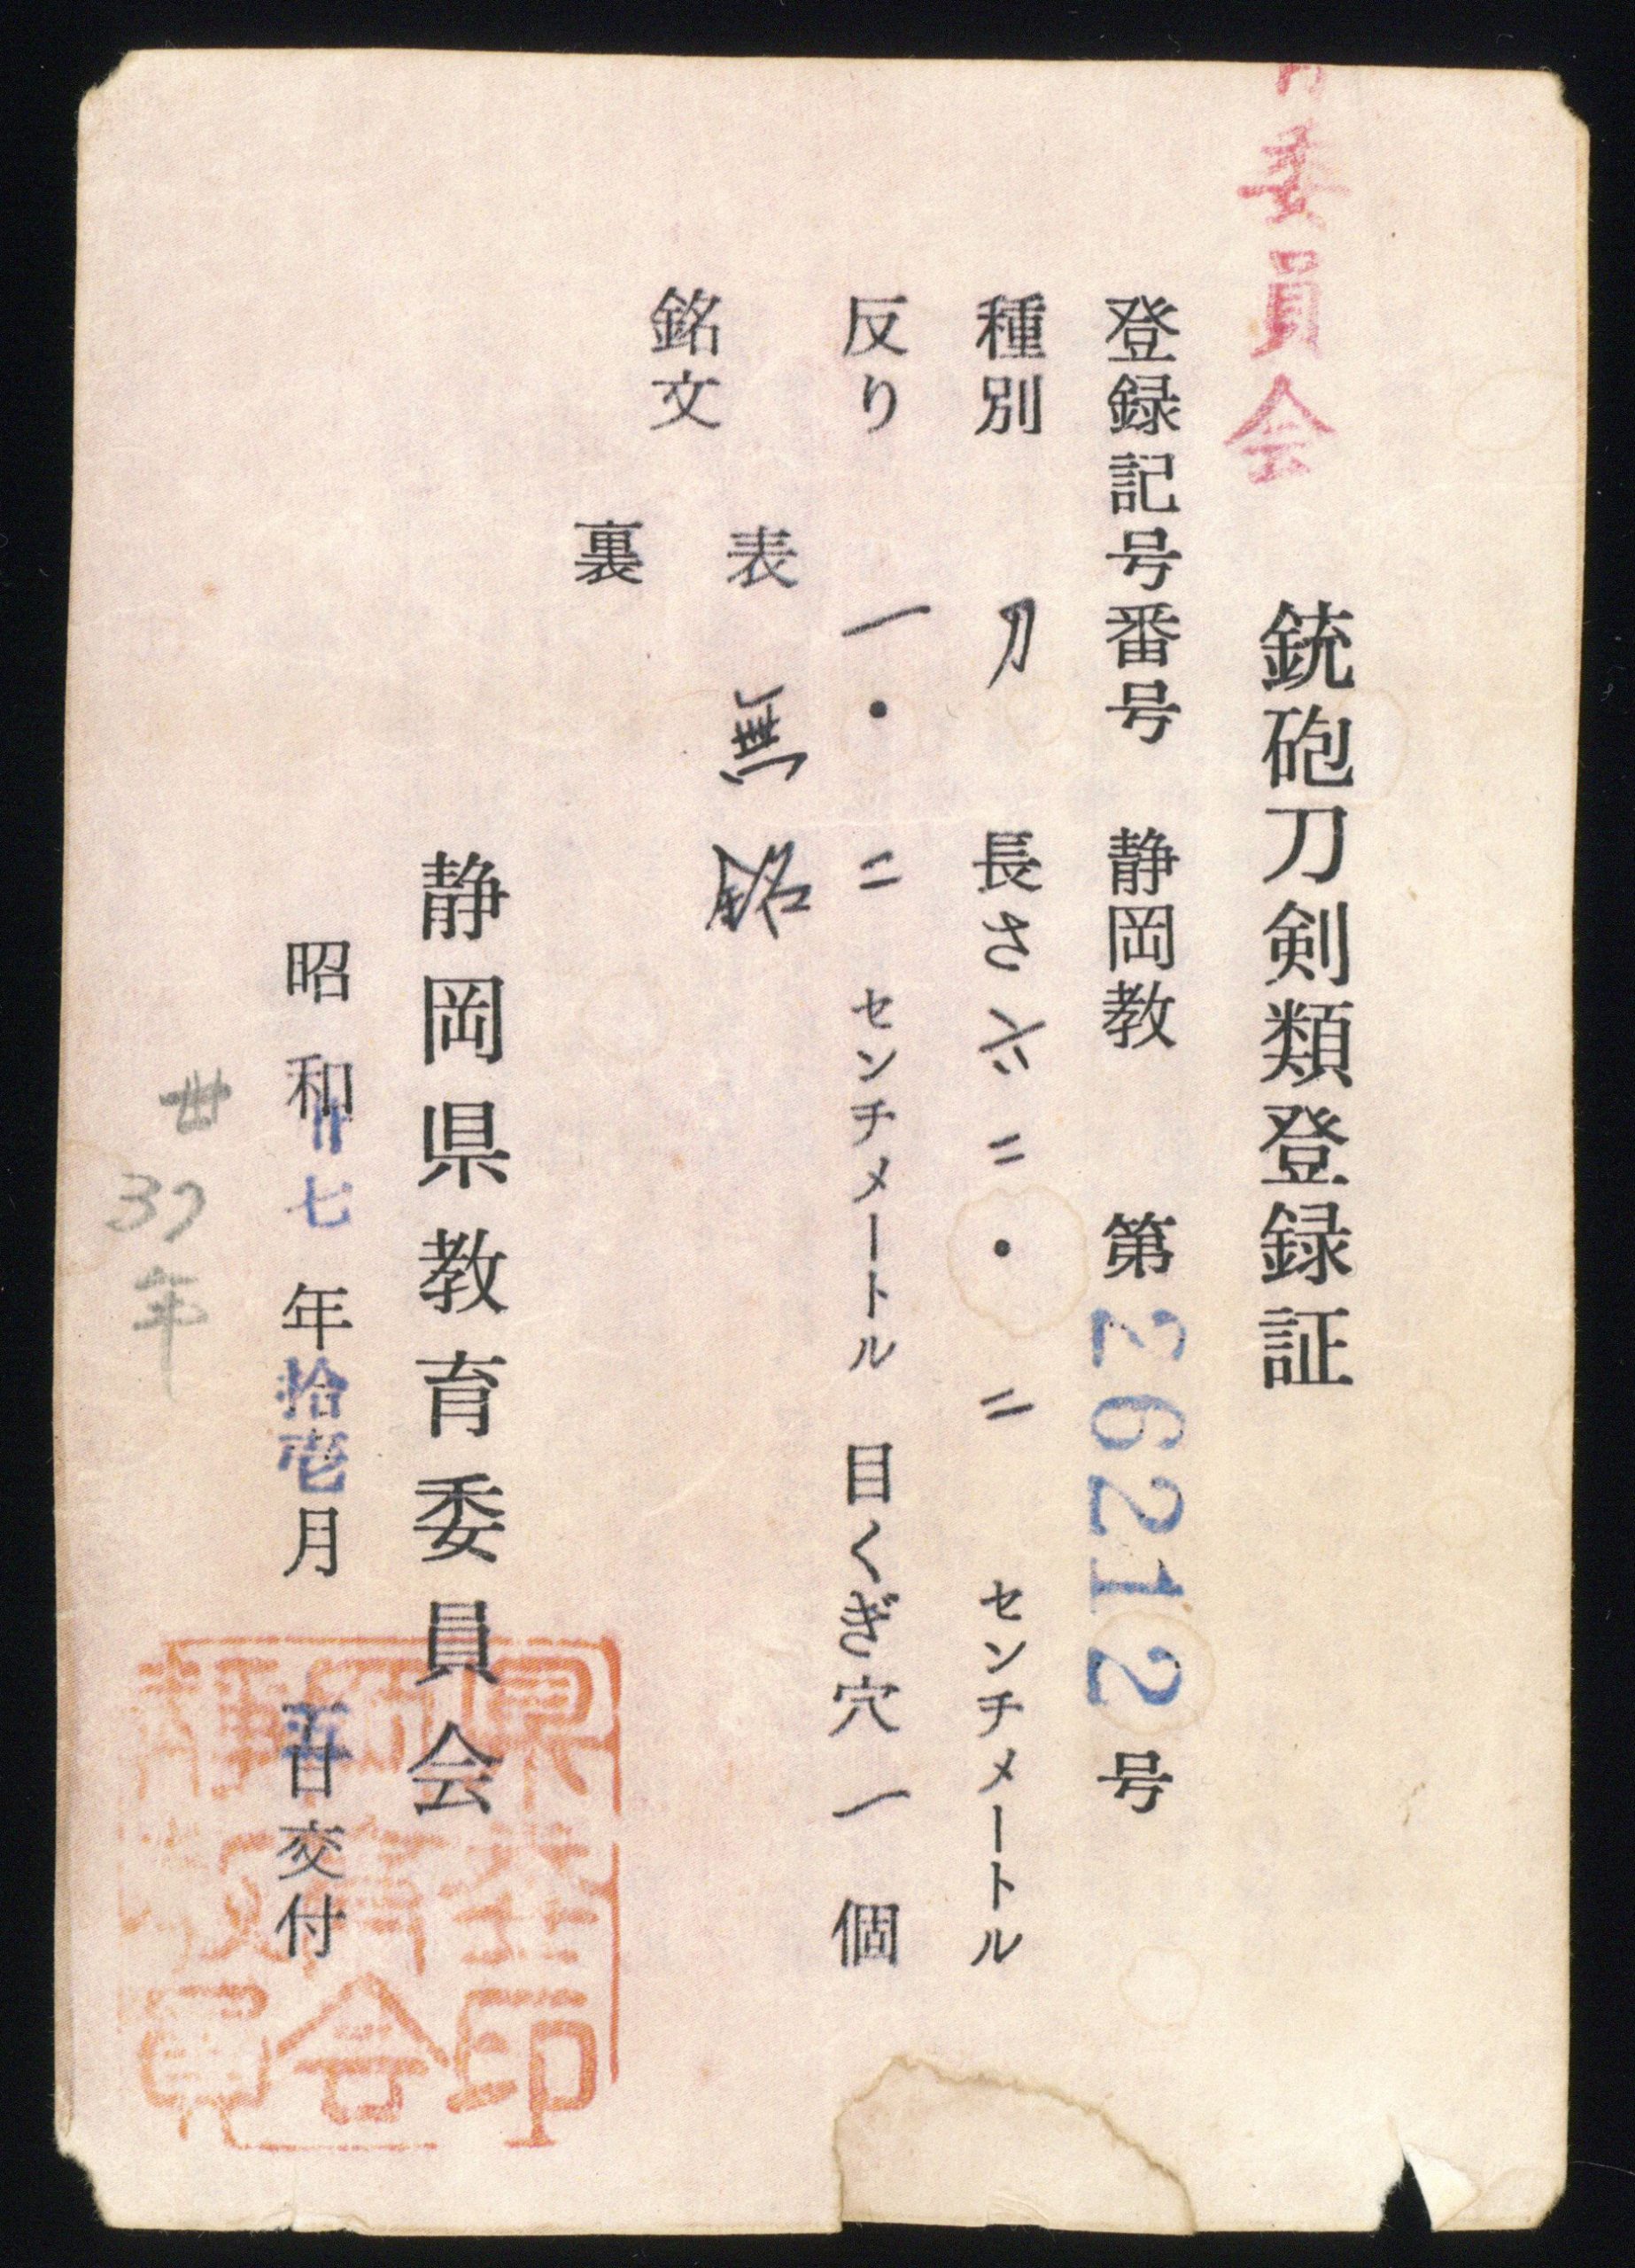 委員会
銃砲刀剣類登録証
登録記号番号 静岡教 第26212号
種別 刀 長さ 六二・二 センチメートル
反り 一・二 センチメートル 目くぎ穴 一 個
銘文 表 無銘
裏
静岡県教育委員会
昭和卅七年拾壱月 日交付
卅
37年